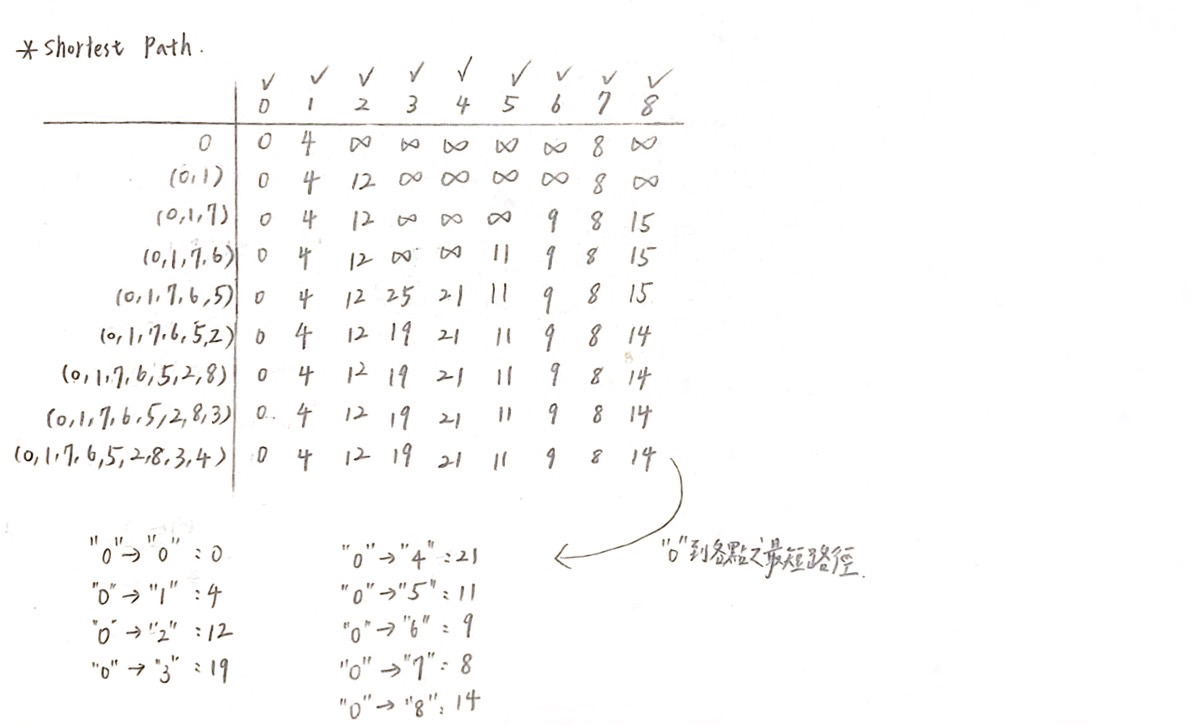 * Shortest Path.
✓ ✓ ✓ ✓ ✓ ✓ ✓ ✓ ✓
0 1 2 3 4 5 6 7 8
0 0 4 ∞ ∞ ∞ ∞ ∞ 8 ∞
(0,1) 0 4 12 ∞ ∞ ∞ ∞ 8 ∞
(0,1,7) 0 4 12 ∞ ∞ ∞ 9 8 15
(0,1,7,6) 0 4 12 ∞ ∞ 11 9 8 15
(0,1,7,6,5) 0 4 12 25 21 11 9 8 15
(0,1,7,6,5,2) 0 4 12 19 21 11 9 8 14
(0,1,7,6,5,2,8) 0 4 12 19 21 11 9 8 14
(0,1,7,6,5,2,8,3) 0 4 12 19 21 11 9 8 14
(0,1,7,6,5,2,8,3,4) 0 4 12 19 21 11 9 8 14
"0"到各點之最短路徑.
"0"→"0" : 0
"0"→"1" : 4
"0"→"2" : 12
"0"→"3" : 19
"0"→"4" : 21
"0"→"5" : 11
"0"→"6" : 9
"0"→"7" : 8
"0"→"8" : 14